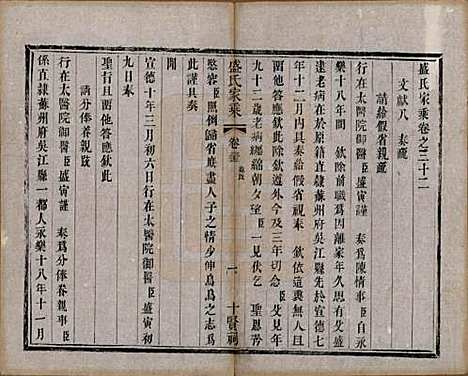 盛氏家乘卷之三十二
文獻八 奏疏
請給假省親疏
行在太醫院御醫臣盛寅謹 奏爲陳情事臣自永
樂十八年間 欽除前職爲因離家年久思有父母
達老病在於原籍直隸蘇州府吳江縣先於宣德七
年十二月內具奏給假省視奉 欽依這奭無人且
而他答應欽此除欽遵外今及三年切思 父見年
九十二歲老病纏綿朝夕望臣一見伏乞 聖恩
愍容臣照例歸省庶盡人子之情少伸烏烏之志爲
此謹具奏
聞
宣德十年三月初六日行在太醫院御醫臣盛寅初
九日奉
聖旨且而他答應欽此
請分俸養親疏
行在太醫院御醫臣盛寅謹 奏爲分俸養親事臣
係直隸蘇州府吳江縣一都人永樂十八年十一月
盛氏家乘
卷三十二
奏疏
一
十賢祠